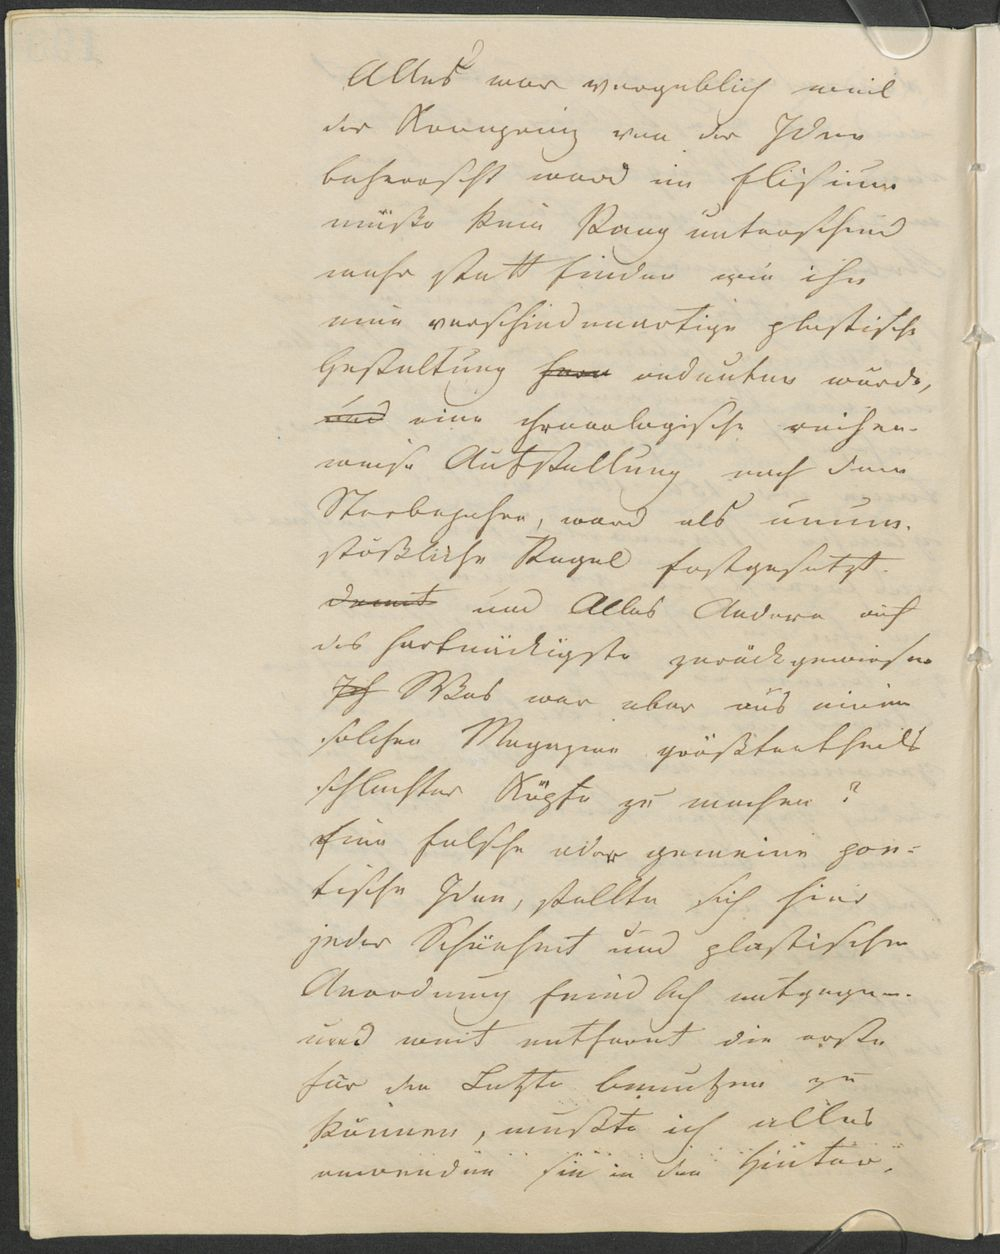 Alles war vergeblich weil
der Kronprinz von der Idee
beherrscht ward im Elisium
müßte kein Rang unterschied
mehr statt finden wie ihn
eine verschiedenartige plastische
Gestaltung andeuten würde,
und eine chronologische reihen-
weise Aufstellung nach dem
Sterbejahre, ward als unum-
stößliche Regel festgesetzt.
damit und Alles Andere auf
das hartnäckigste zurückgewiesen
Ich Was war aber aus einem
solchen Magazine größtentheils
schlechter Köpfe zu machen?
Eine falsche oder gemeine poe-
tische Idee, stellte sich hier
jeder Schönheit und plastischen
Anordnung feindlich entgegen-
und weit entfernt die erste
für die Letzte benutzen zu
können, mußte ich alles
anwenden sie in den Hinter-